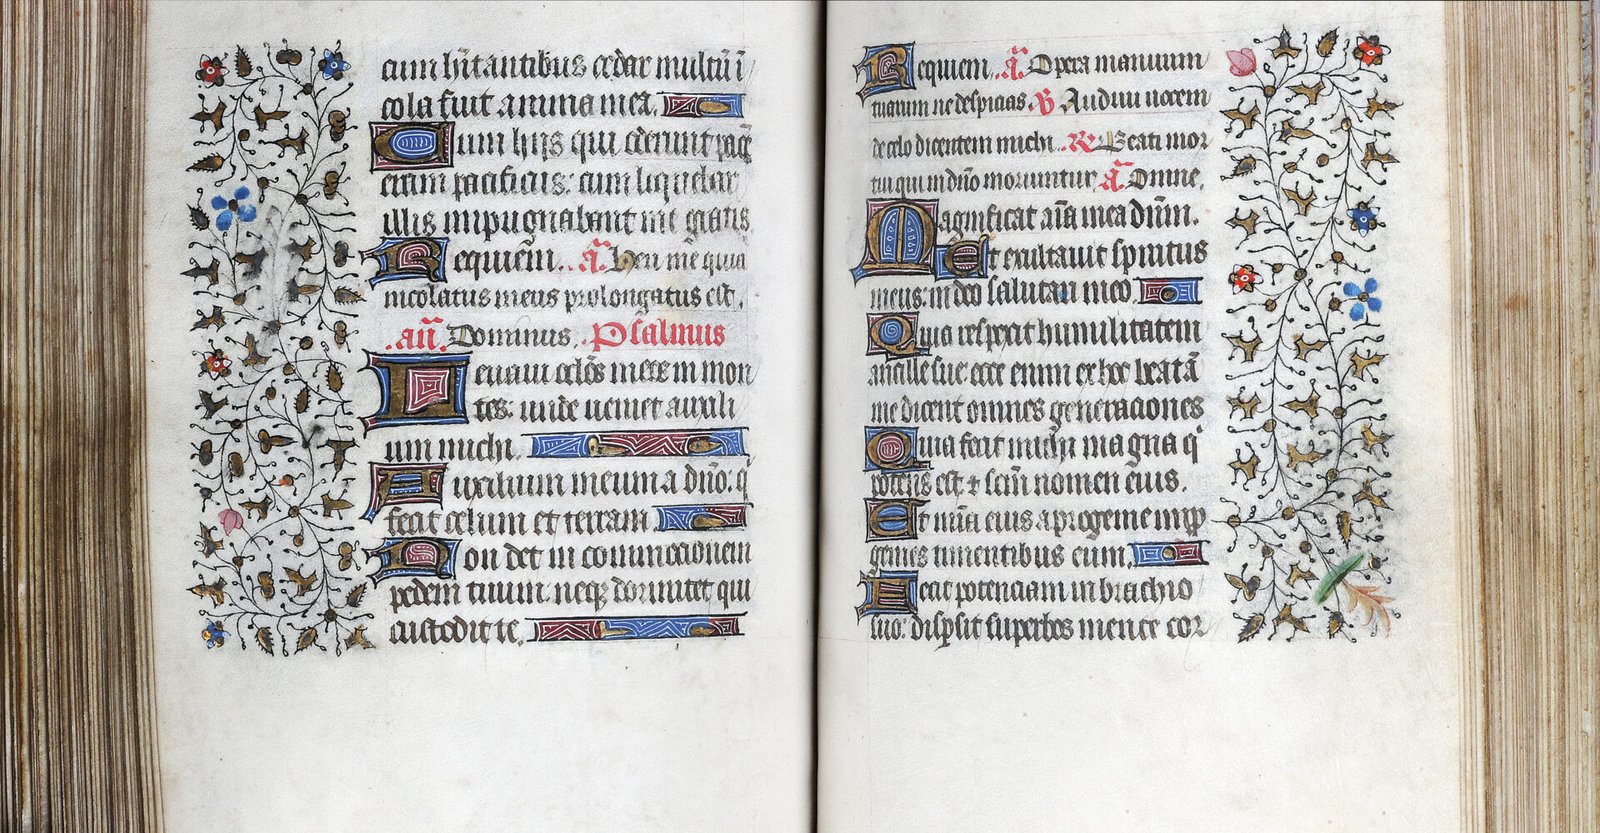 cum hītantibus cedar multū ī
cola fuit anima mea.
Cum hijs qui oderunt pacē
eram pacificus: cum loquebar
illis impugnabant me gratis
Requiem. .ā. Heu me quia
incolatus meus prolongatus est.
.añ. Dominus. Psalmus
Leuaui oclōs meos in mon
tes: unde ueniet auxili
um michi.
Auxilium meum a dño: q̄
fecit celum et terram
Non det in comniocionem
pedem tuum: neqz dormitet qui
custodit te.
Requiem. .ā. Opera manuum
tuarum ne despicias. V Audiui uocem
de celo dicentem michi. R Beati mor
tui qui in dño moriuntur ā. Omne.
Magnificat aīa mea dūm.
Et exultauit spiritus
meus: in deo salutari meo.
Quia respexit humilitatem
ancille sue: ecce enim ex hoc beatā
me dicent omnes generaciones
Quia fecit michi magna q̄
potens est: & scm̄ nomen eius.
Et mīa eius a progenie in p̱
genies timentibus eum.
Fecit potenciam in brachio
suo: disp̱sit superbos mente cor